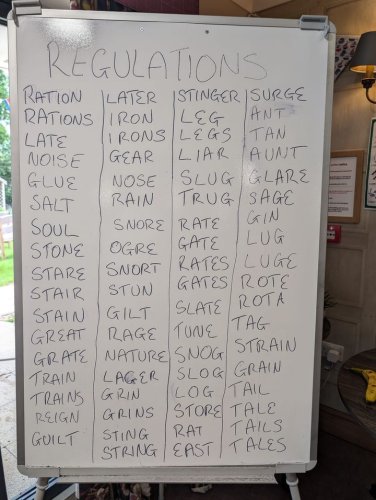 REGULATIONS
RATION
RATIONS
LATE
NOISE
GLUE
SALT
SOUL
STONE
STARE
STAIR
STAIN
GREAT
GRATE
TRAIN
TRAINS
REIGN
GUILT
LATER
IRON
IRONS
GEAR
NOSE
RAIN
SNORE
OGRE
SNORT
STUN
GILT
RAGE
NATURE
LAGER
GRIN
GRINS
STING
STRING
STINGER
LEG
LEGS
LIAR
SLUG
TRUG
RATE
GATE
RATES
GATES
SLATE
TUNE
SNOG
SLOG
LOG
STORE
RAT
EAST
SURGE
ANT
TAN
AUNT
GLARE
SAGE
GIN
LUG
LUGE
ROTE
ROTA
TAG
STRAIN
GRAIN
TAIL
TALE
TAILS
TALES